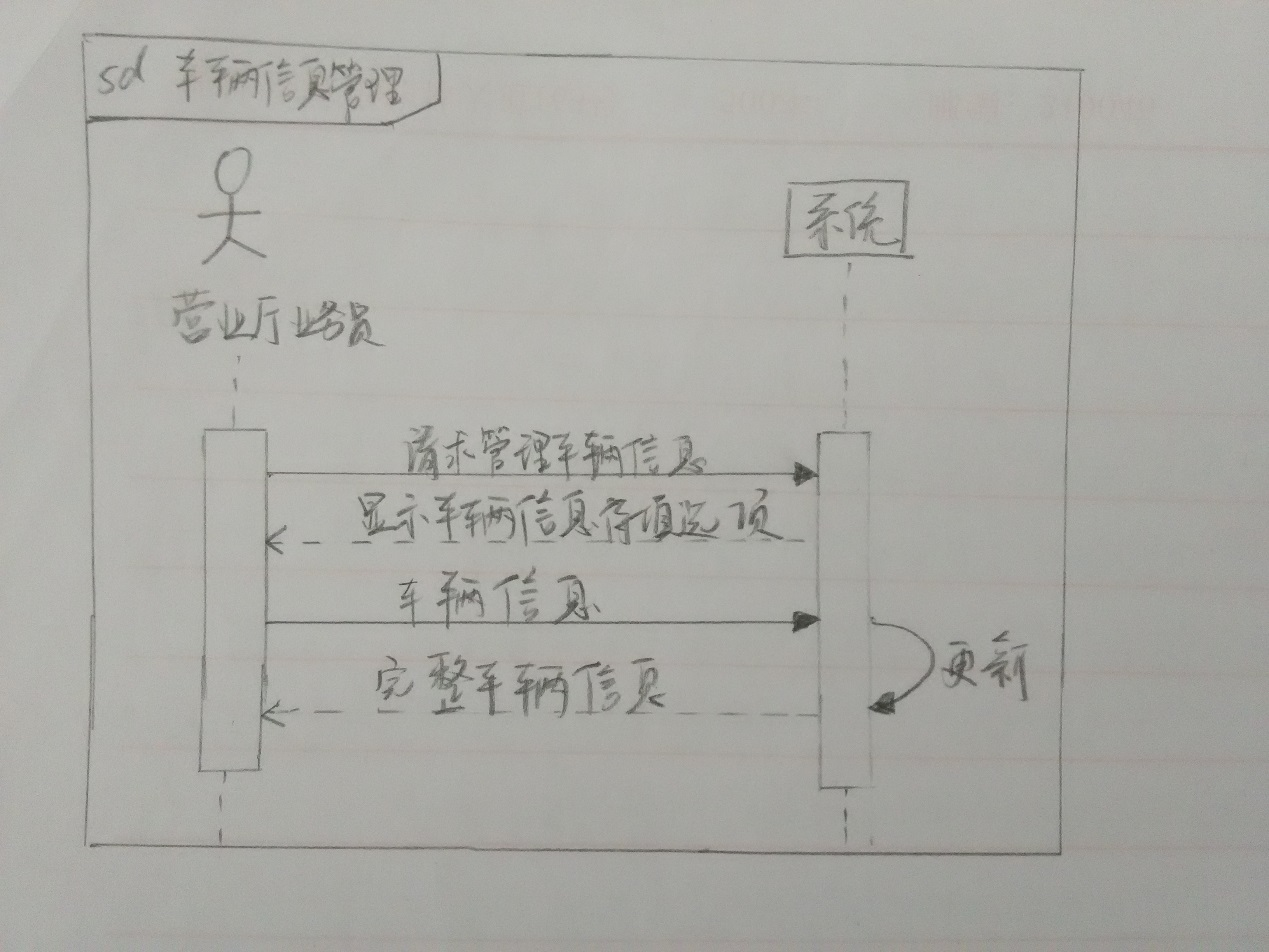 sd 车辆信息管理
系统
营业厅业务员
请求管理车辆信息
显示车辆信息待填选项
车辆信息
完整车辆信息
更新